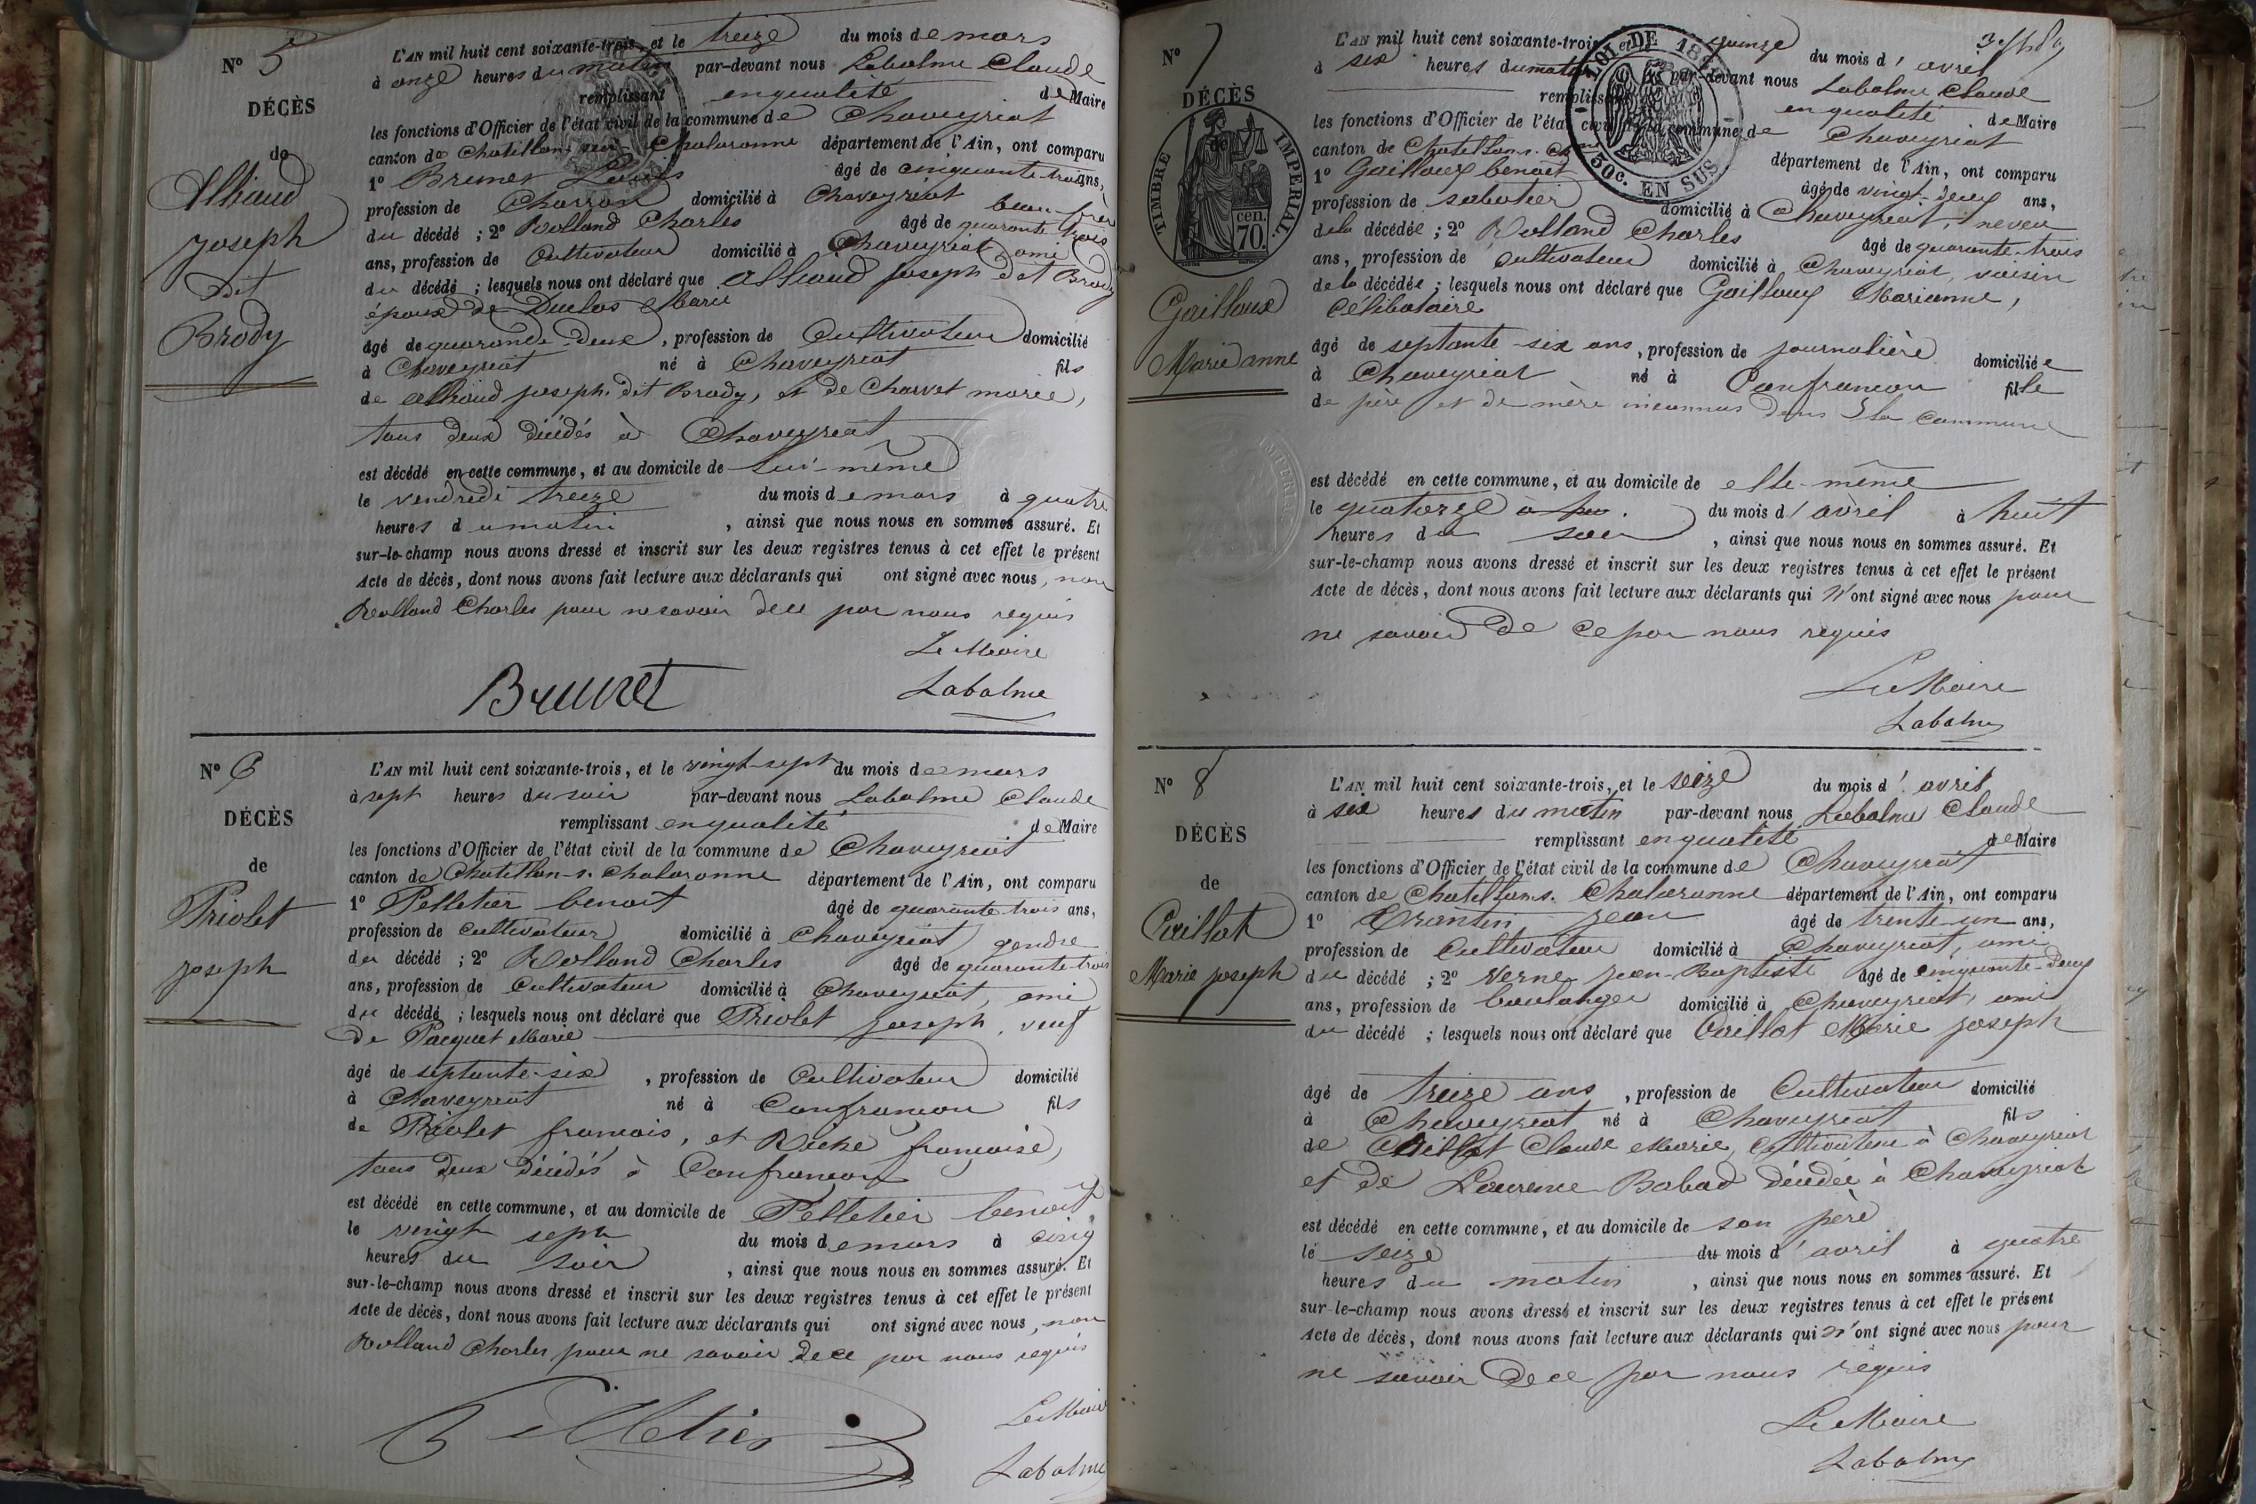 N° 5
DÉCÈS
de
Alliaud
Joseph
dit
Brody
L'AN mil huit cent soixante-trois, et le treize du mois de mars
à onze heures du matin par-devant nous Labalme Claude
remplissant en qualité de Maire
les fonctions d'Officier de l'état civil de la commune de Chaveyriat
canton de Chatillon sur Chalaronne département de l'Ain, ont comparu
1° Brunet Louis âgé de cinquante-trois ans,
profession de Charron domicilié à Chaveyriat beau-frère
du décédé ; 2° Rolland Charles âgé de quarante-trois
ans, profession de Cultivateur domicilié à Chaveyriat, ami
du décédé ; lesquels nous ont déclaré que Alliaud Joseph dit Brody
époux de Duclos Marie
âgé de quarande-deux, profession de Cultivateur domicilié
à Chaveyriat né à Chaveyriat fils
de Alliaud Joseph dit Brody, et de Charvet marie,
tous deux décédés à Chaveyriat
est décédé en cette commune, et au domicile de lui-même
le vendredi treize du mois de mars à quatre
heures du matin, ainsi que nous nous en sommes assuré. Et
sur-le-champ nous avons dressé et inscrit sur les deux registres tenus à cet effet le présent
Acte de décès, dont nous avons fait lecture aux déclarants qui ont signé avec nous, non
Rolland Charles pour ne savoir de ce par nous requis
Le Maire
Brunet Labalme
N° 6
DÉCÈS
de
Priolet
Joseph
L'AN mil huit cent soixante-trois, et le vingt-sept du mois de mars
à sept heures du soir par-devant nous Labalme Claude
remplissant en qualité de Maire
les fonctions d'Officier de l'état civil de la commune de Chaveyriat
canton de Chatillon-s. Chalaronne département de l'Ain, ont comparu
1° Pelletier benoit âgé de quarante-trois ans,
profession de cultivateur domicilié à Chaveyriat gendre
du décédé ; 2° Rolland Charles âgé de quarante-trois
ans, profession de Cultivateur domicilié à Chaveyriat, ami
du décédé ; lesquels nous ont déclaré que Priolet Joseph, veuf
de Pacquet Marie
âgé de septante-six, profession de Cultivateur domicilié
à Chaveyriat né à Confrançon fils
de Priolet francois, et Riche françoise,
tous deux décédés à Confrancon
est décédé en cette commune, et au domicile de Pelletier benoit
le vingt sept du mois de mars à cinq
heures du soir, ainsi que nous nous en sommes assuré. Et
sur-le-champ nous avons dressé et inscrit sur les deux registres tenus à cet effet le présent
Acte de décès, dont nous avons fait lecture aux déclarants qui ont signé avec nous, non
Rolland Charles pour ne savoir de ce par nous requis
Le Maire
Pelletier Labalme
N° 7
DÉCÈS
de
TIMBRE IMPÉRIAL
70. cen.
LOI DE 18
50c. EN SUS
Gailloux
Marie anne
L'AN mil huit cent soixante-trois, et le quinze du mois d'avril
à six heures du matin par-devant nous Labalme Claude
remplissant en qualité de Maire
les fonctions d'Officier de l'état civil de la commune de Chaveyriat
canton de Chatillon s. Ch département de l'Ain, ont comparu
1° Gailloux benoit âgé de vingt-deux ans,
profession de sabotier domicilié à Chaveyriat, neveu
de la décédée ; 2° Rolland Charles âgé de quarante-trois
ans, profession de Cultivateur domicilié à Chaveyriat, voisin
de la décédée ; lesquels nous ont déclaré que Gailloux Marianne,
Célibataire
âgé de septante-six ans, profession de journalière domiciliée
à Chaveyriat né à Confrancon fille
de père et de mère inconnus dans la commune
est décédé en cette commune, et au domicile de elle-même
le quatorze du mois d'avril à huit
heures du soir, ainsi que nous nous en sommes assuré. Et
sur-le-champ nous avons dressé et inscrit sur les deux registres tenus à cet effet le présent
Acte de décès, dont nous avons fait lecture aux déclarants qui n'ont signé avec nous pour
ne savoir de ce par nous requis
Le Maire
Labalme
N° 8
DÉCÈS
de
Caillat
Marie Joseph
L'AN mil huit cent soixante-trois, et le seize du mois d'avril
à six heures du matin par-devant nous Labalme Claude
remplissant en qualité de Maire
les fonctions d'Officier de l'état civil de la commune de Chaveyriat
canton de Chatillon s. Chalaronne département de l'Ain, ont comparu
1° Jean âgé de trente-un ans,
profession de Cultivateur domicilié à Chaveyriat, ami
du décédé ; 2° Verne Jean-Baptiste âgé de cinquante-deux
ans, profession de boulanger domicilié à Chaveyriat, ami
du décédé ; lesquels nous ont déclaré que Caillat Marie Joseph
âgé de treize ans, profession de Cultivateur domicilié
à Chaveyriat né à Chaveyriat fils
de Caillat Claude Marie, Cultivateur à Chaveyriat
et de Laurence Babad décédée à Chaveyriat
est décédé en cette commune, et au domicile de son père
le seize du mois d'avril à quatre
heures du matin, ainsi que nous nous en sommes assuré. Et
sur-le-champ nous avons dressé et inscrit sur les deux registres tenus à cet effet le présent
Acte de décès, dont nous avons fait lecture aux déclarants qui n'ont signé avec nous pour
ne savoir de ce par nous requis
Le Maire
Labalme